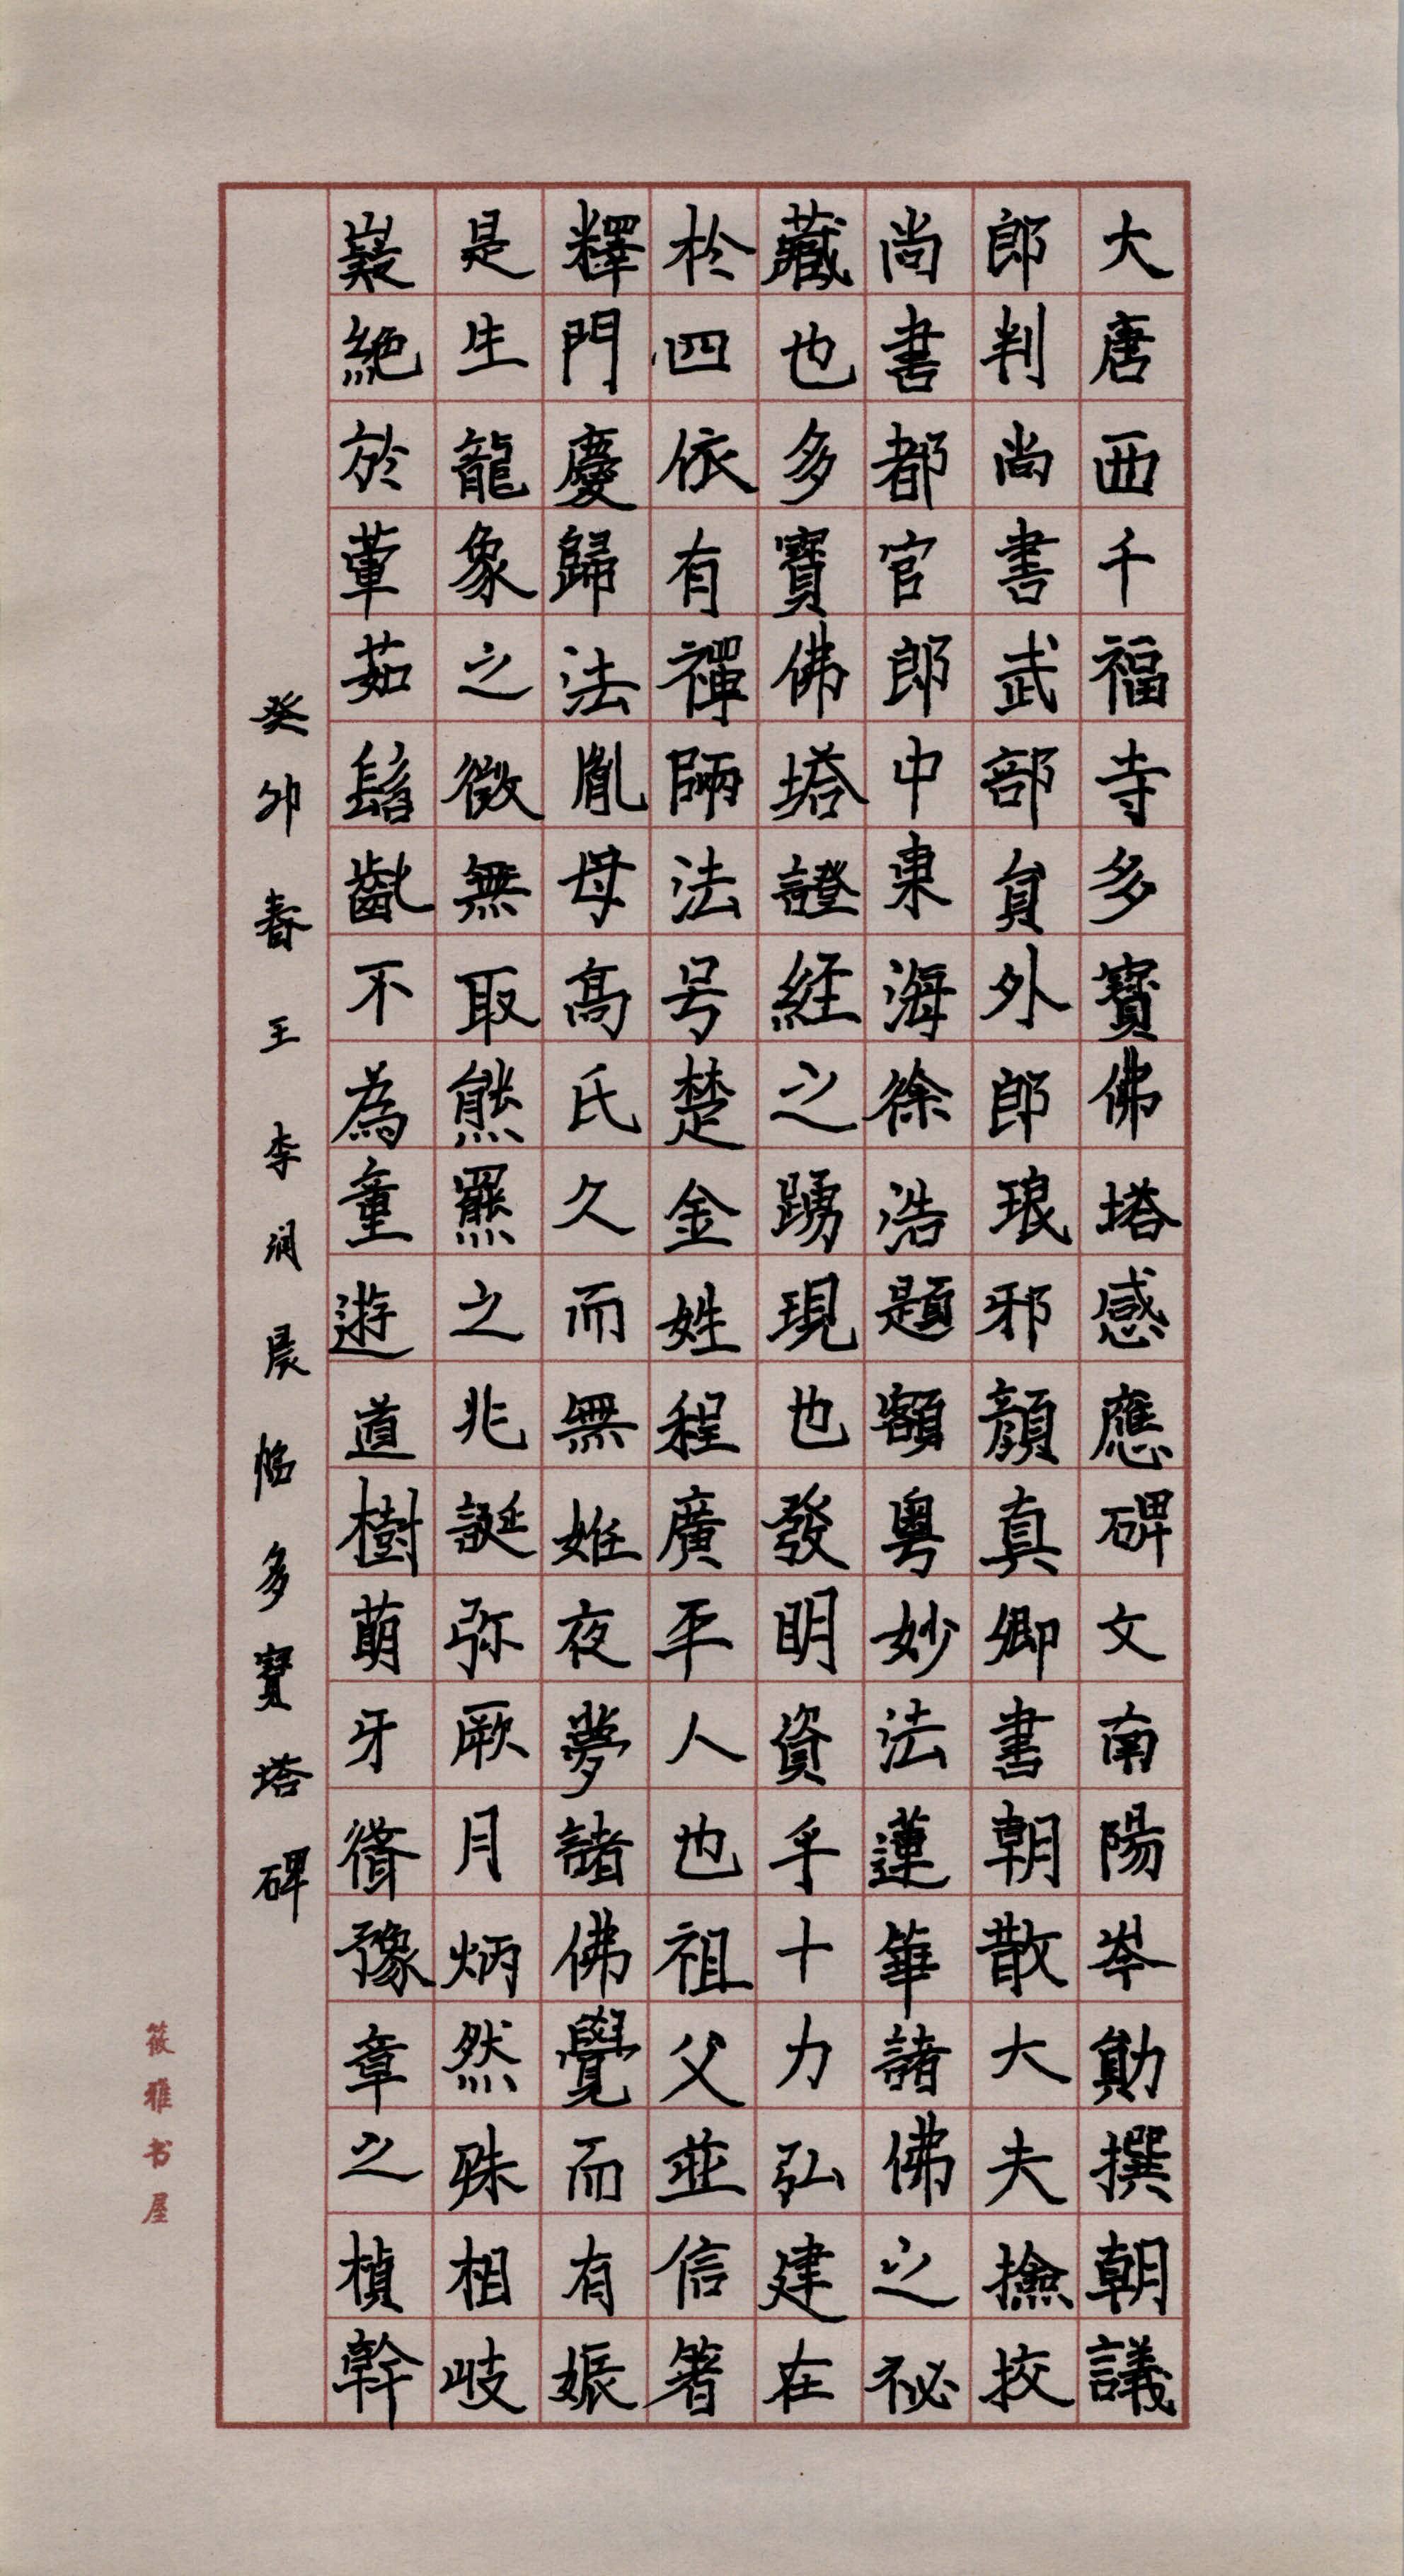 大唐西千福寺多寶佛塔感應碑文南陽岑勛撰朝議
郎判尚書武部員外郎琅邪顏真卿書朝散大夫撿挍
尚書都官郎中東海徐浩題額粵妙法蓮華諸佛之祕
藏也多寶佛塔證經之踴現也發明資乎十力弘建在
於四依有禪師法号楚金姓程廣平人也祖父並信著
釋門慶歸法胤母高氏久而無姙夜夢諸佛覺而有娠
是生龍象之徵無取熊羆之兆誕弥厥月炳然殊相岐
嶷絕於葷茹髫齔不為童遊道樹萌牙聳豫章之楨幹
癸卯春王李润晨临多寶塔碑
筱雅书屋